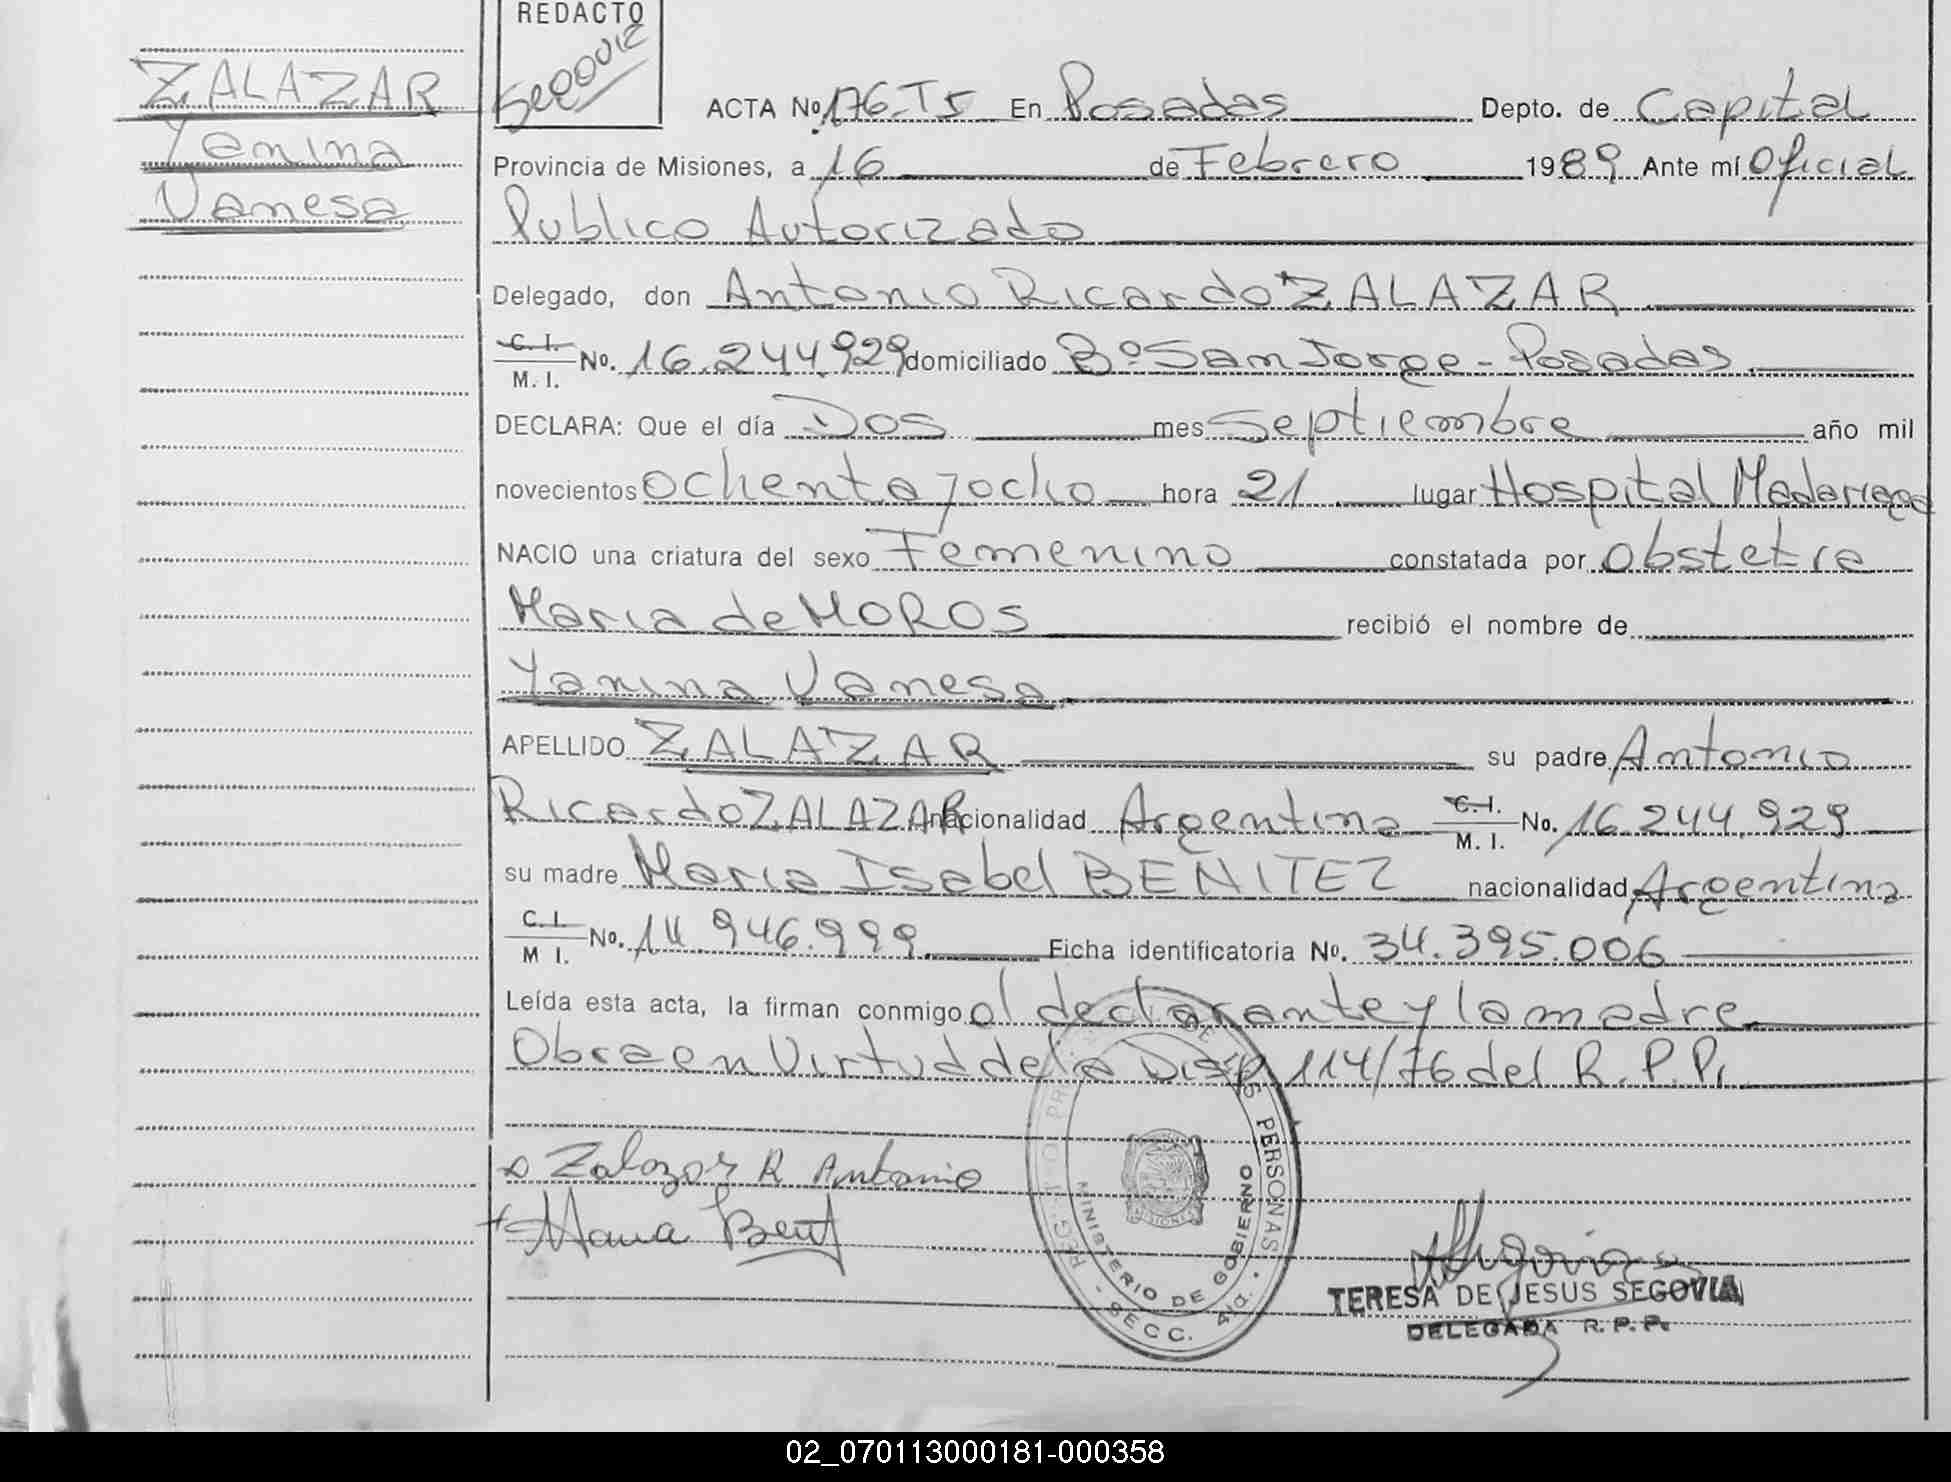 REDACTO
ZALAZAR
Yanina
Vanesa
ACTA No. 176-T5 En Posadas Depto. de Capital
Provincia de Misiones, a 16 de Febrero 1989 Ante mí Oficial
Publico Autorizado
Delegado, don Antonio Ricardo ZALAZAR
C. I.
M. I. No. 16.244.929 domiciliado Bº San Jorge - Posadas
DECLARA: Que el día Dos mes Septiembre año mil
novecientos ochenta y ocho hora 21 lugar Hospital Madariaga
NACIO una criatura del sexo Femenino constatada por obstetra
Maria de MOROS recibió el nombre de
Yanina Vanesa
APELLIDO ZALAZAR su padre Antonio
Ricardo ZALAZAR nacionalidad Argentina C. I. M. I. No. 16.244.929
su madre Maria Isabel BENITEZ nacionalidad Argentina
C. I.
M I. No. 14.946.999 Ficha identificatoria No. 34.395.006
Leída esta acta, la firman conmigo el declarante y la madre
Obra en Virtud de la Disp 114/76 del R. P. P.
Zalazar R Antonio
Maria Benit
DE LAS PERSONAS
MINISTERIO DE GOBIERNO
MISIONES
SECC. 4ta.
TERESA DE JESUS SEGOVIA
DELEGADA R. P. P.
02_070113000181-000358